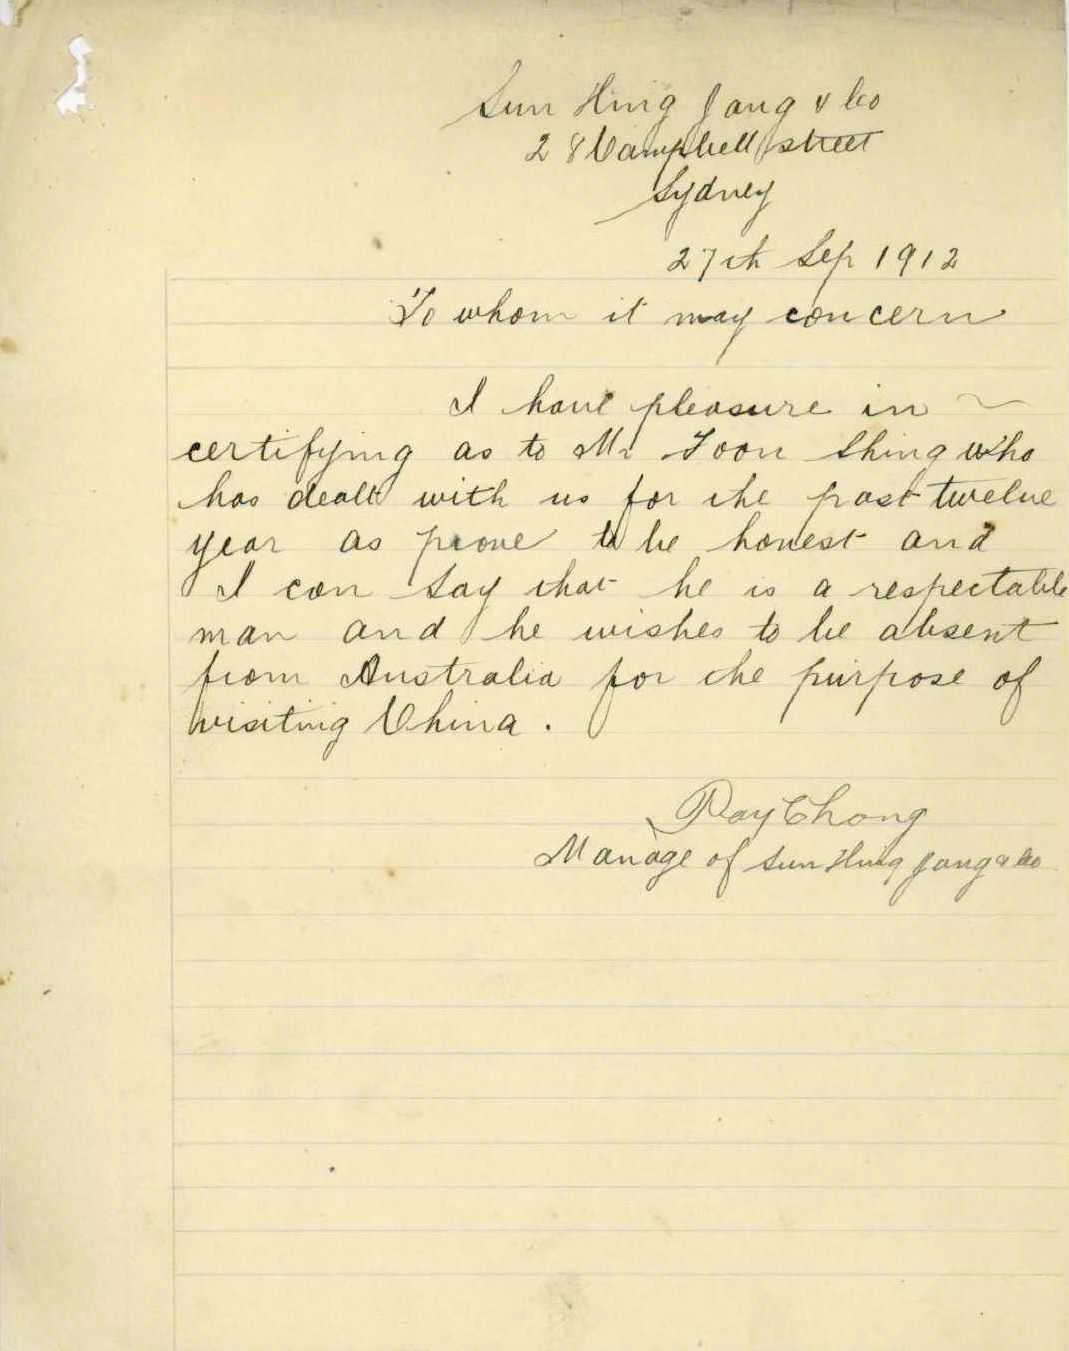 Sun Hing Jang & Co
28 Campbell street
Sydney
27th Sep 1912
To whom it may concern
I have pleasure in
certifying as to Mr Toon Shing who
has dealt with us for the past twelve
year as prove to be honest and
I can say that he is a respectable
man and he wishes to be absent
from Australia for the purpose of
visiting China.
Ray Chong
Manage of Sun Hing Jang & Co